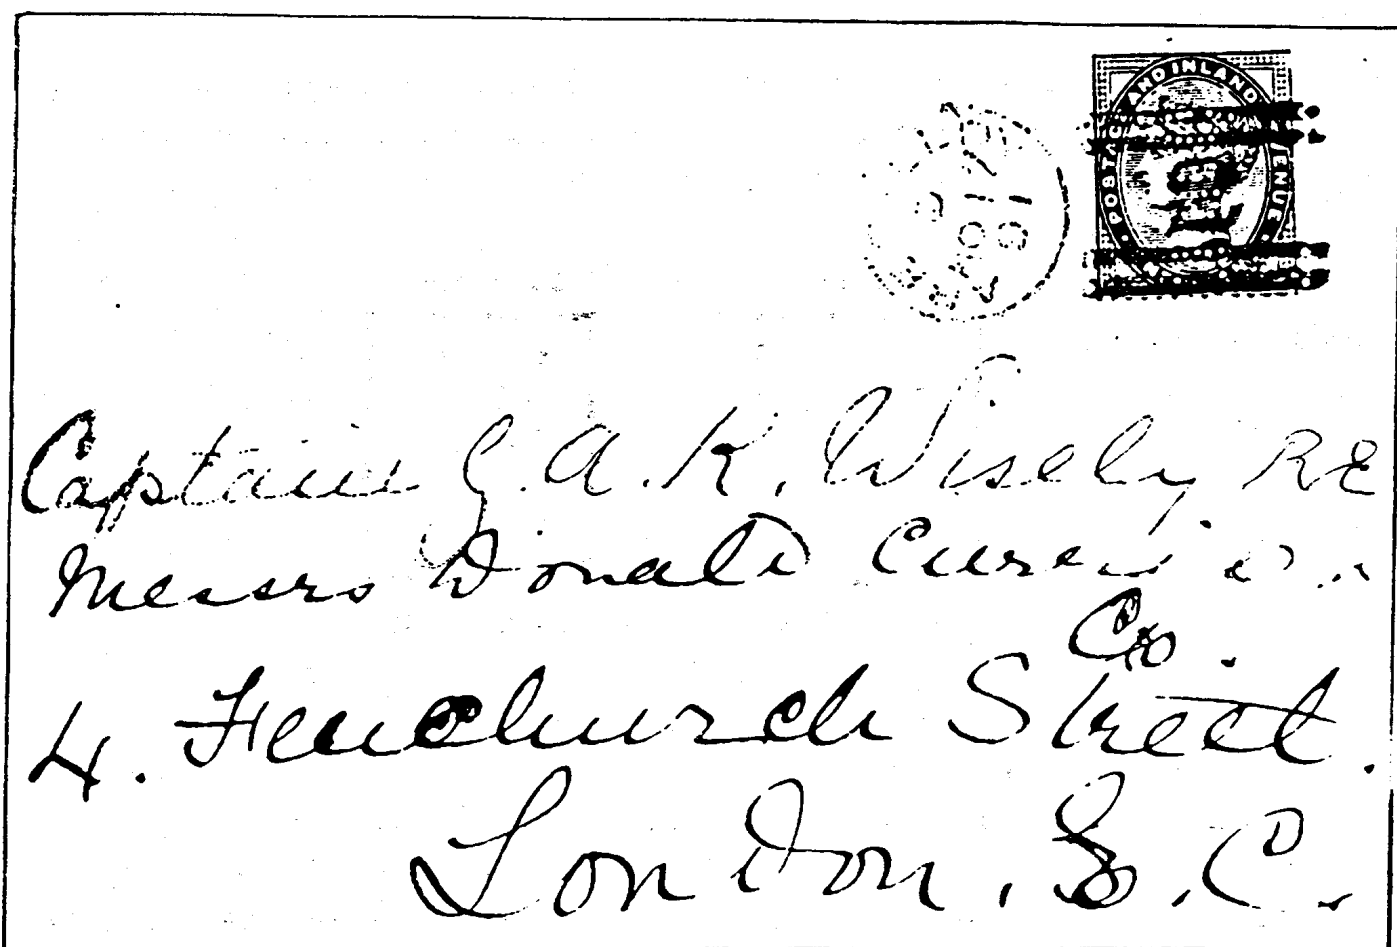 POSTAGE AND INLAND REVENUE
Captain G. A. K. Wisely, RE
Messrs Donald Currie
Co.
4. Fenchurch Street.
London. E. C.